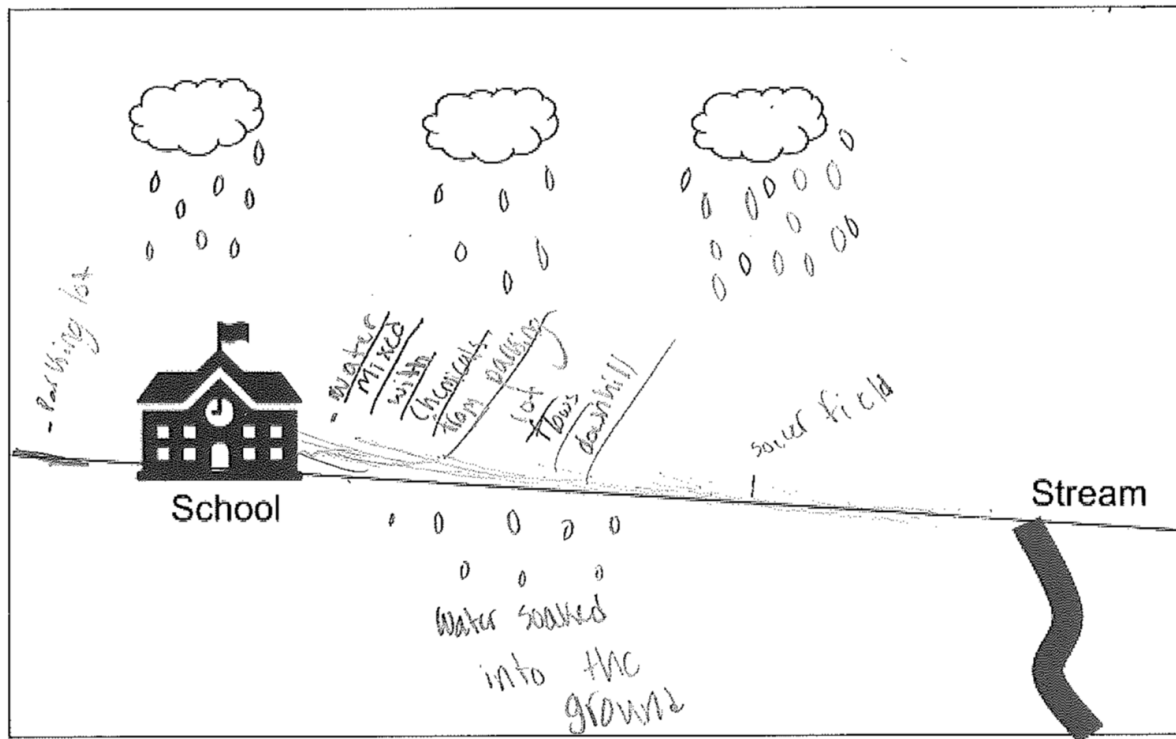 - Parking lot
- water
mixed
with
chemicals
from parking
lot
flows
downhill
soccer field
School
Stream
water soaked
into the
ground